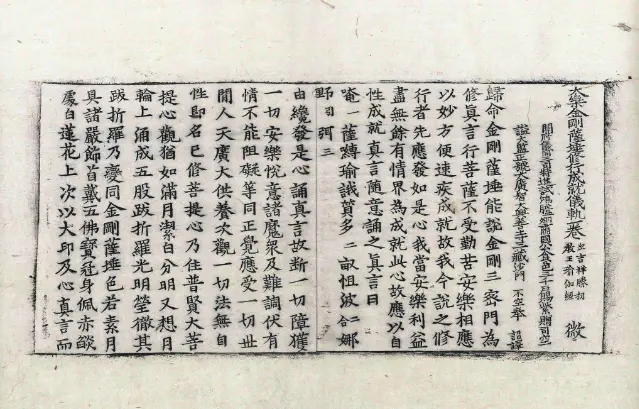 大樂金剛薩埵修行成就儀軌卷 出吉祥勝初教王瑜伽經 微
開府儀同三司特進試鴻臚卿肅國公食邑三千戶賜紫贈司空
謚大鑒正號大廣智大興善寺三藏沙門 不空奉 詔譯
歸命金剛薩埵能說金剛三密門為
修真言行菩薩不受勤苦安樂相應
以妙方便速疾成就故我今說之修
行者先應發如是心我當安樂利益
盡無餘有情界為成就此心故應以自
性成就真言隨意誦之真言曰
唵一薩縛瑜誐質多二怛波合二娜
野三
由纔發是心誦真言故斷一切障獲
一切安樂悅意諸魔衆及難調伏有
情不能阻礙等同正覺應受一切世
間人天廣大供養次觀一切法無自
性即名已修菩提心乃住普賢大菩
提心觀猶如滿月潔白分明又想月
輪上涌成五股跋折羅光明瑩徹其
跋折羅乃變同金剛薩埵色若素月
具諸嚴飾首戴五佛寶冠身佩赤燄
處白蓮花上次以大印及心真言而